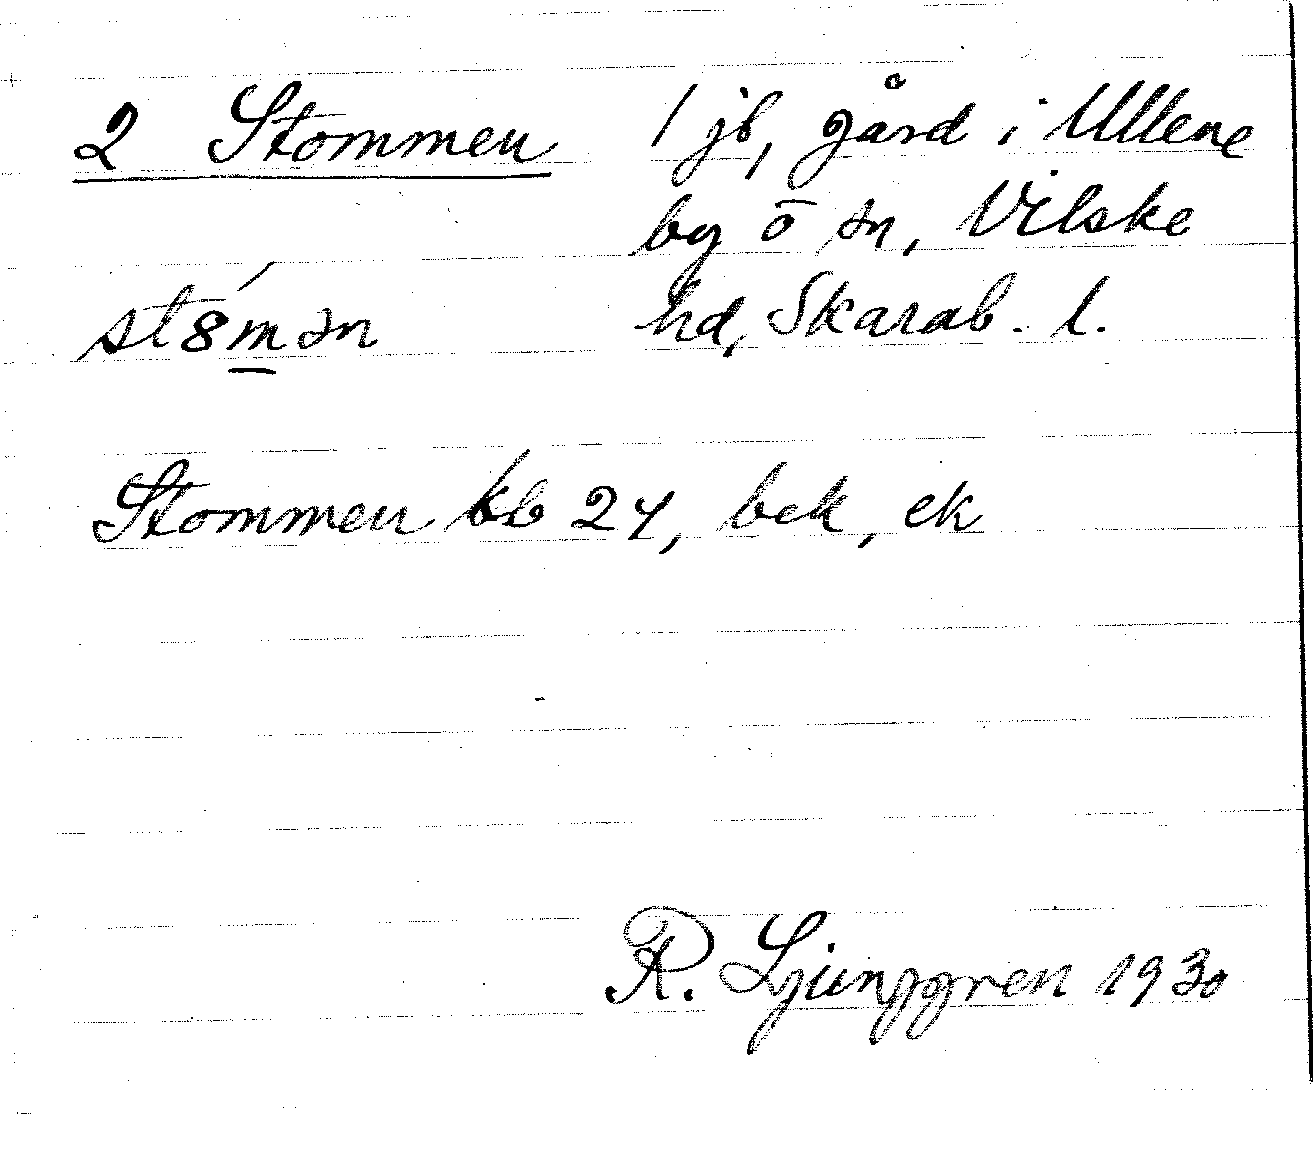 2 Stommen 1 jb, gård i Ullene
by ō sn, Vilske
st8́m̲ən hd, Skarab. l.
Stommen kb 24, bek, ek
R. Ljunggren 1930